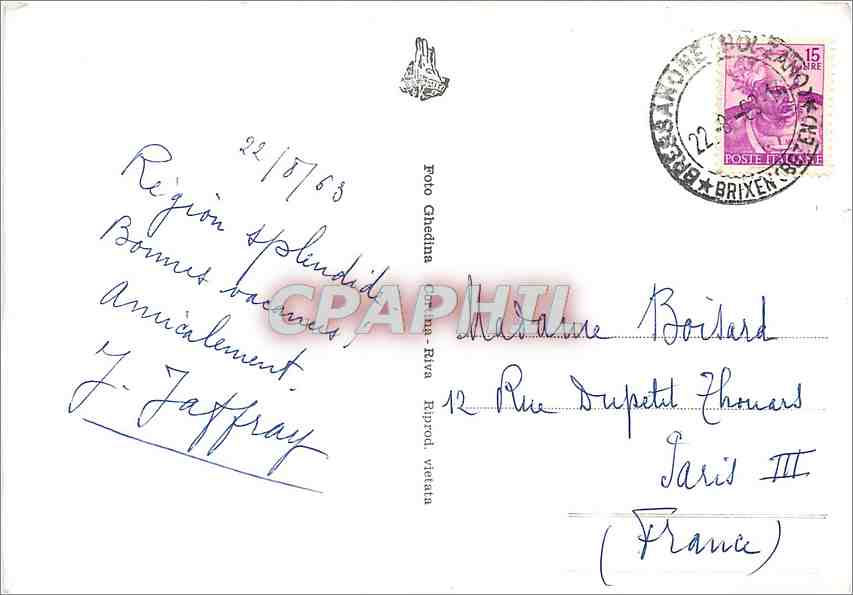 22/8/63
Région splendide
Bonnes vacances,
Amicalement.
J. Jaffray
Foto Ghedina Cortina - Riva Riprod. vietata
CPAPHIL
15
LIRE
POSTE ITALIANE
BRESSANONE (BOLZANO)
22.-8.-63
★ BRIXEN (BOZEN) ★
Madame Boisard
12 Rue Dupetit Thouars
Paris III
(France)